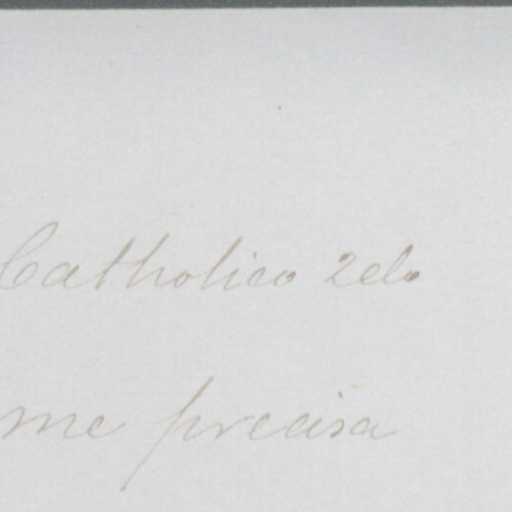 Catholico zelo
me precisa